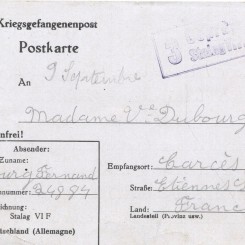 Kriegsgefangenenpost
Postkarte
An 9 Septembre
Madame Vce Dubourg
nfrei!
Absender:
Zuname:
ourg Fernand
nummer: 34884
ichnung:
Stalag VI F
utschland (Allemagne)
Empfangsort: Carcès
Straße: Etienne
Land: Franc
Landesteil (Provinz usw.)